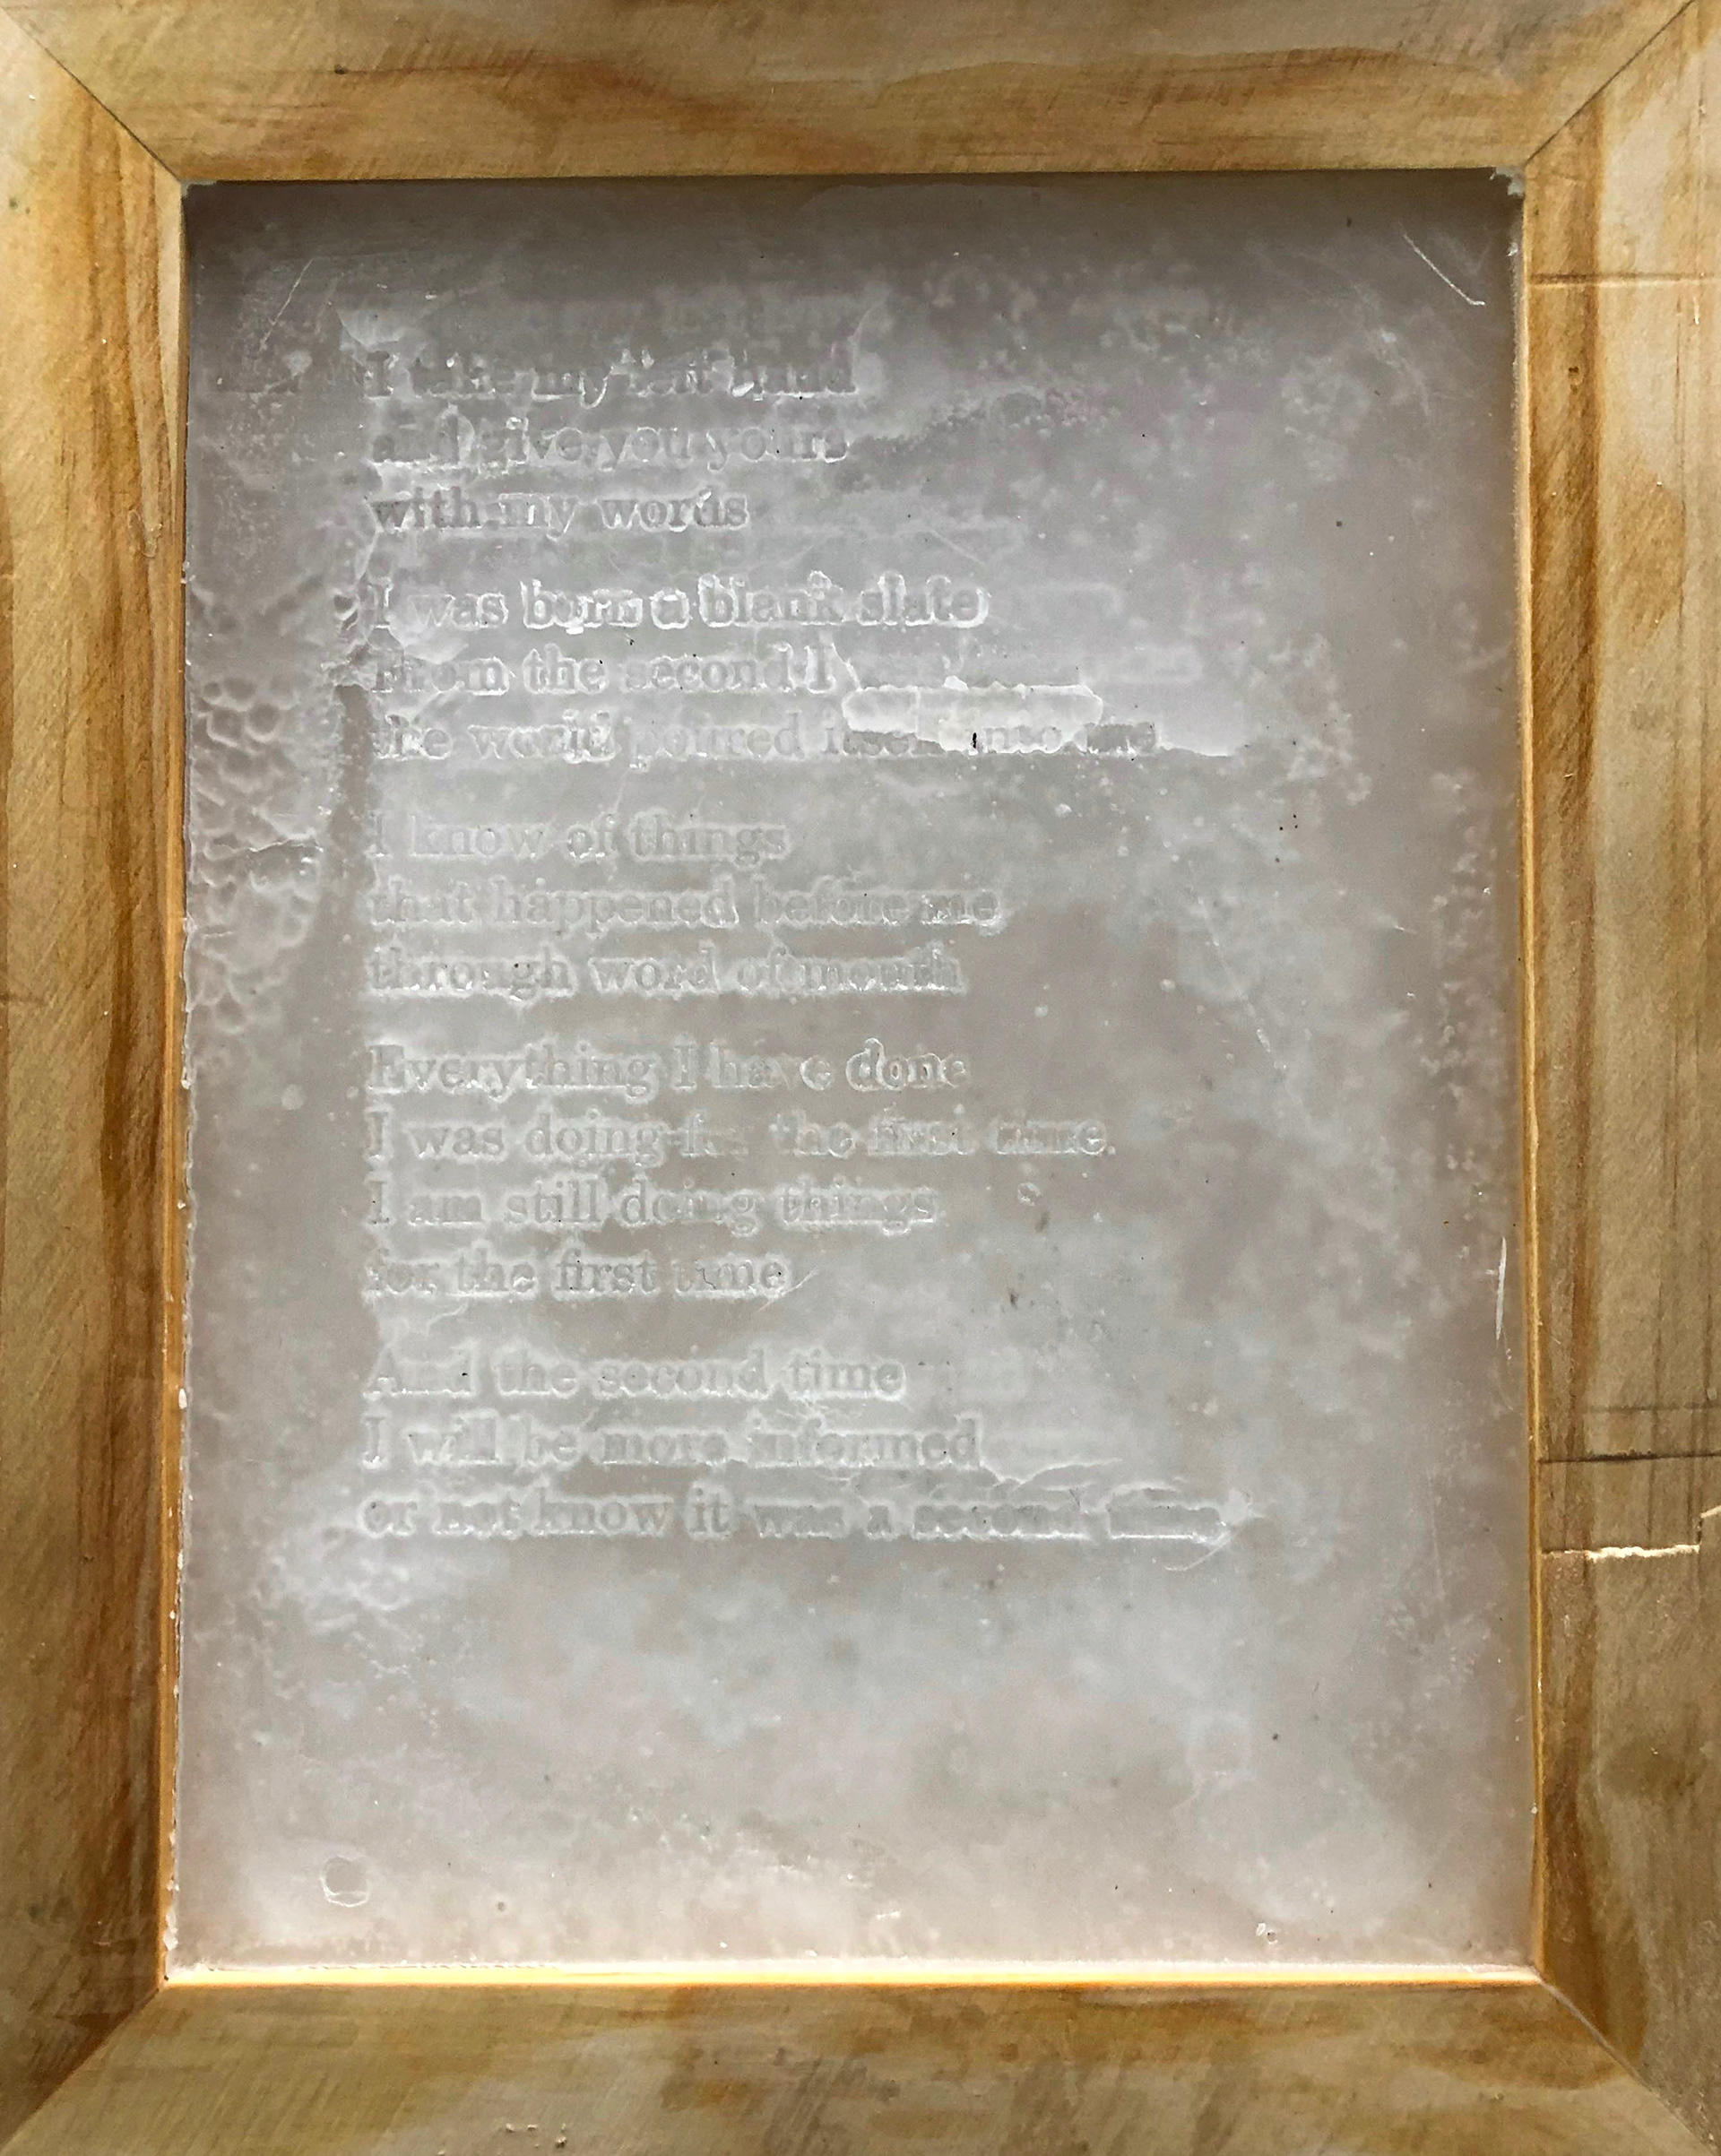 I take my left hand
and give you yours
with my words
I was born a blank slate
From the second I
the world poured itself into me
I know of things
that happened before me
through word of mouth
Everything I have done
I was doing for the first time.
I am still doing things
for the first time
And the second time
I will be more informed
or not know it was a second time